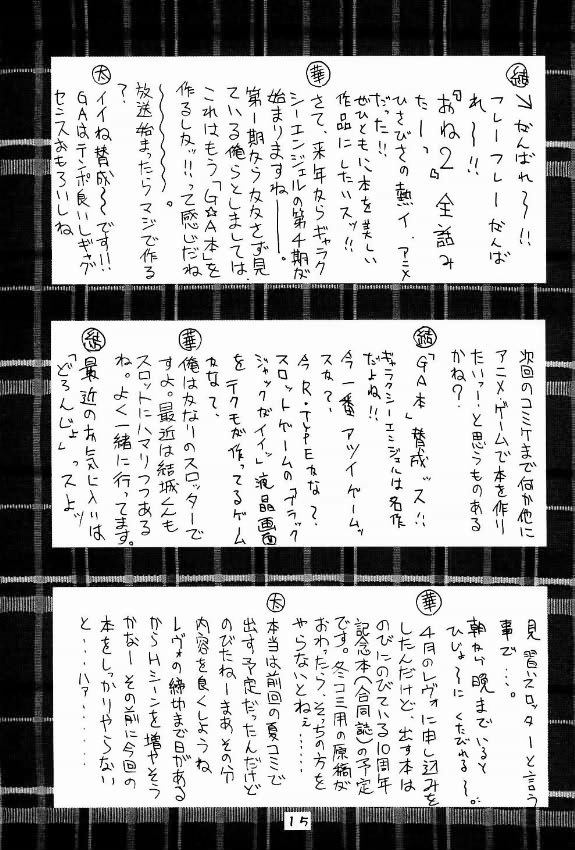 結→がんばれ~!!
フレーフレーがんば
れ~!!
「おね2」全話み
たーっ
ひさびさの熱イ、アニメ
だった!!
ぜひともに本を美しい
作品にしたいスッ!!
華
さて、来年からギャラク
シーエンジェルの第4期が
始まりますねー。
第1期からかかさず見
ている俺らとしましては、
これはもう「G☆A本」を
作るしかッ!!って感じだね
~~~~~。
放送始まったらマジで作る
?
太
イイね賛成~です!!
GAはテンポ良いしギャグ
センスおもろいしね
次回のコミケまで何か他に
アニメ・ゲームで本を作り
たいっ!と思うものある
かね?
結
「GA本」賛成ッス!!
ギャラクシーエンジェルは名作
だよね!!
今一番アツイゲームッ
スか?
今R・TYPEかな?
スロットゲームの「ブラック
ジャックがイイッ」液晶画面
をテクモが作ってるゲーム
かな?
華
俺はかなりのスロッターで
すよ。最近は結城くんも
スロットにハマりつつある
ね。よく一緒に行ってます。
結
最近のお気に入りは
「どろんじょ」っスよッ
見習いスロッターと言う
事で…。
朝から晩までいると
ひじょ~にくたびれる~。
華
4月のレヴォに申し込みを
したんだけど、出す本は
のびにのびている10周年
記念本(合同誌)の予定
です。冬コミ用の原稿が
おわったら、そっちの方を
やらないとねぇ……
太
本当は前回の夏コミで
出す予定だったんだけど
のびたねーまあその分
内容を良くしようね
レヴォの締切まで日がある
からHシーンを増やそう
かなーその前に今回の
本をしっかりやらない
と……ハァ………
15